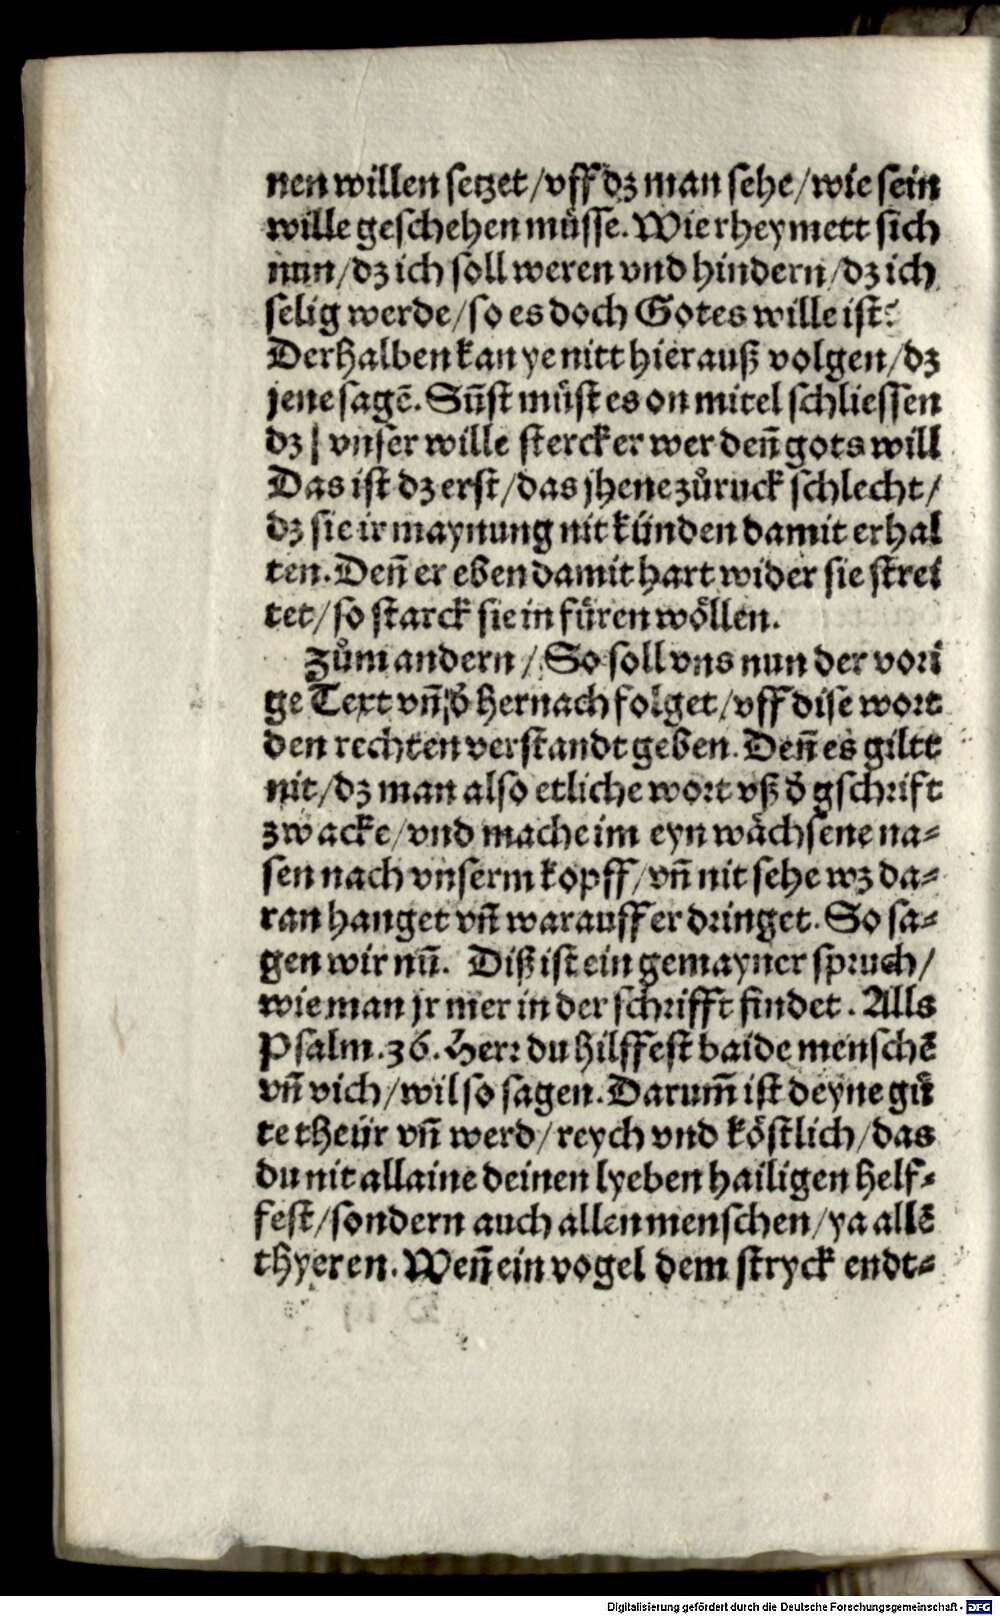 nen willen setzet / vff dz man sehe / wie sein
wille geschehen müsse. Wie rheymett sich
nun / dz ich soll weren vnd hindern / dz ich
selig werde / so es doch Gotes wille ist?
Derhalben kan ye nitt hier auß volgen / dz
jene sagẽ. Sũst müst es on mitel schliessen
dz / vnser wille stercker wer deñ gots will
Das ist dz erst / das jhene zůruck schlecht /
dz sie ir maynung nit künden damit erhal
ten. Deñ er eben damit hart wider sie strei
tet / so starck sie in füren wöllen.
Zům andern / So soll vns nun der vori
ge Text vñ / ð hernach folget / vff dise wort
den rechten verstandt geben. Deñ es giltt
nit / dz man also etliche wort vß ð gschrift
zwacke / vnd mache im eyn wächsene na⸗
sen nach vnserm kopff / vñ nit sehe wz da⸗
ran hanget vñ warauff er dringet. So sa⸗
gen wir nũ. Diß ist ein gemayner spruch /
wie man jr mer in der schrifft findet. Alls
Psalm. 36. Herr du hilffest baide menschẽ
vñ vich / wil so sagen. Darum̃ ist deyne gü
te theür vñ werd / reych vnd köstlich / das
du nit allaine deinen lyeben hailigen helf⸗
fest / sondern auch allen menschen / ya allẽ
thyeren. Weñ ein vogel dem stryck endt⸗
Digitalisierung gefördert durch die Deutsche Forschungsgemeinschaft - DFG